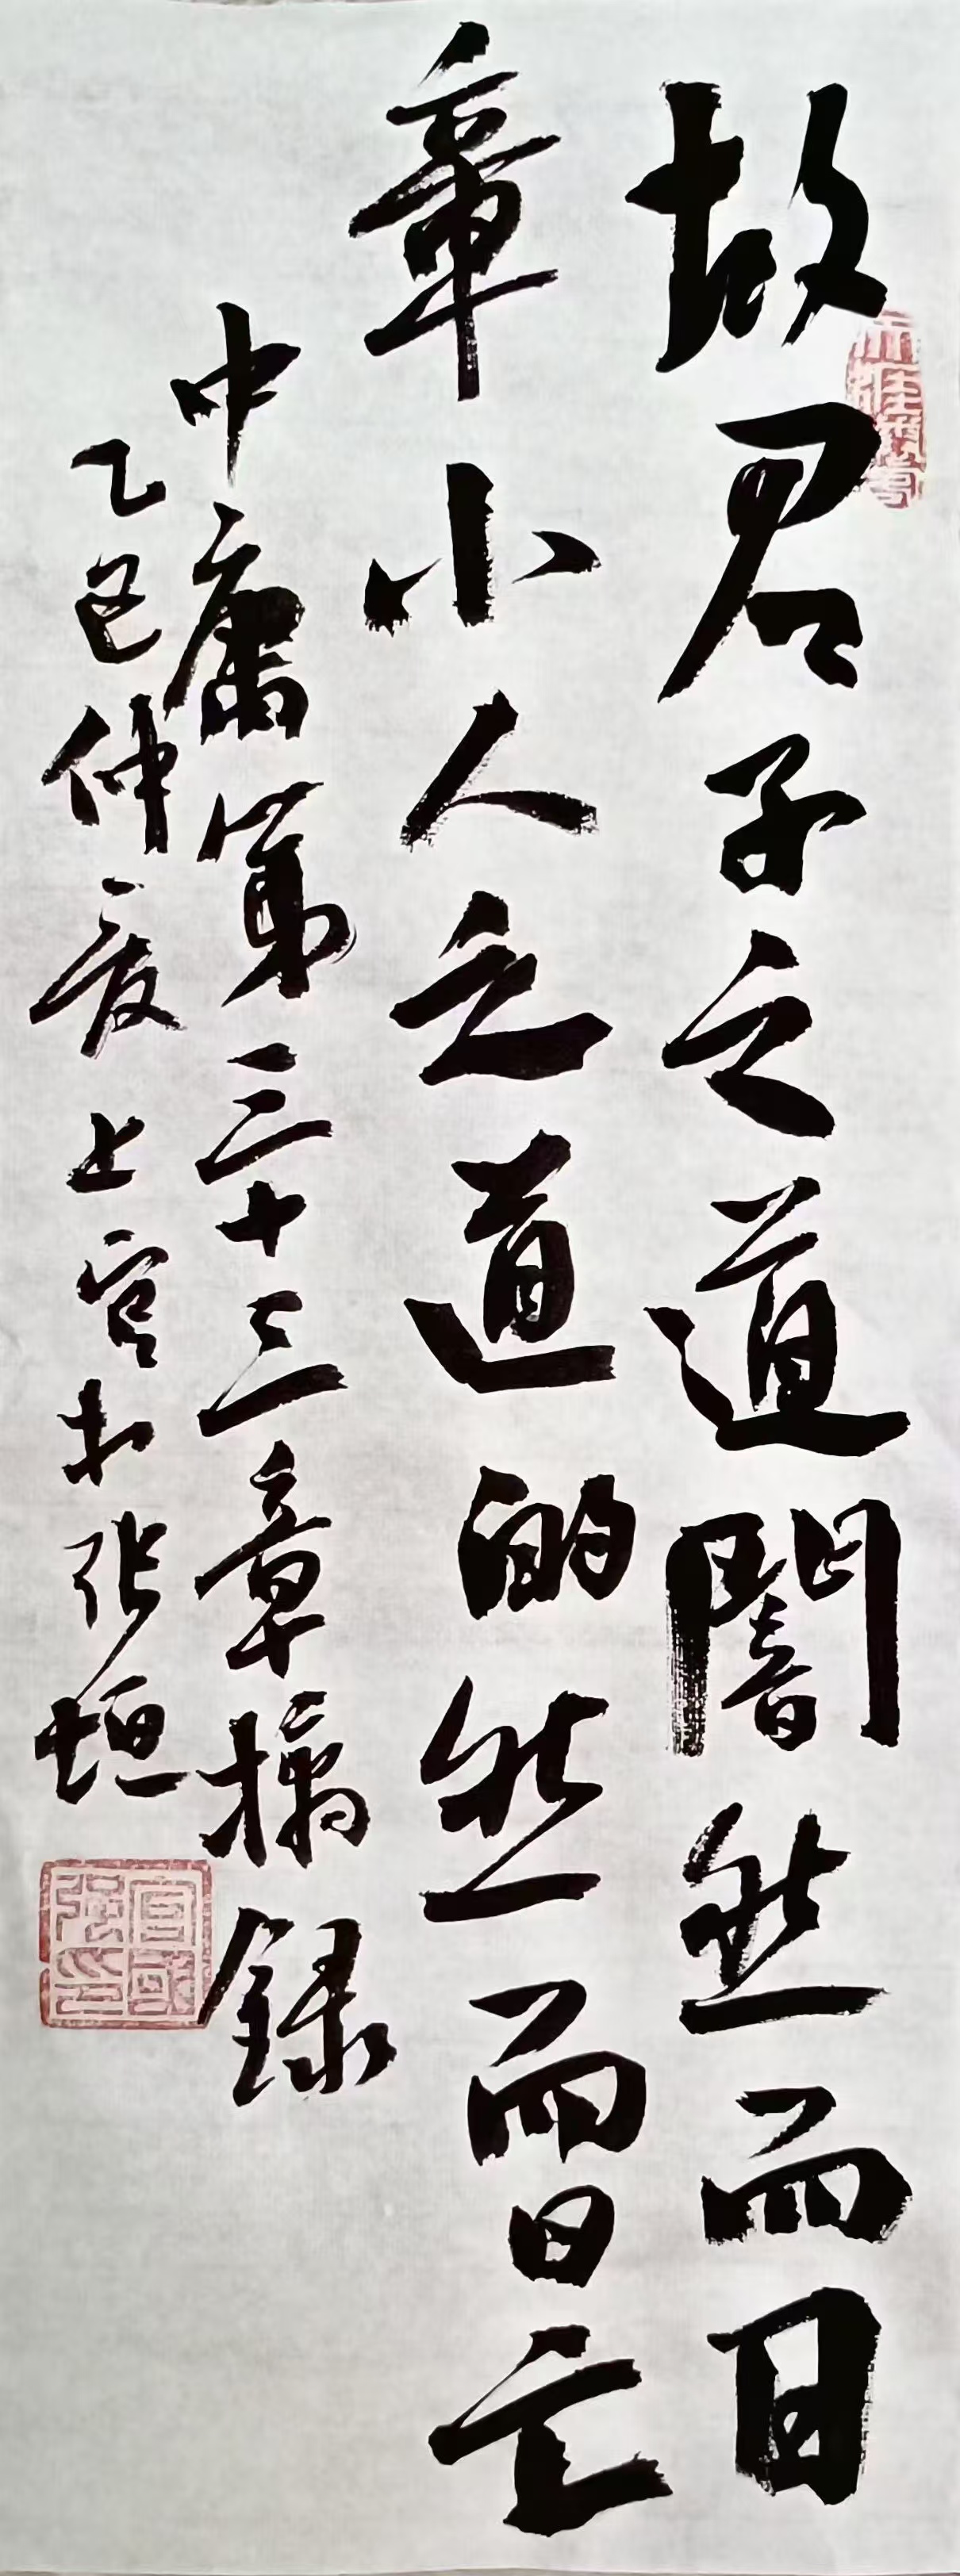 故君子之道闇然而日
章小人之道的然而日亡
中庸第三十三章摘录
乙巳仲夏上官于张垣